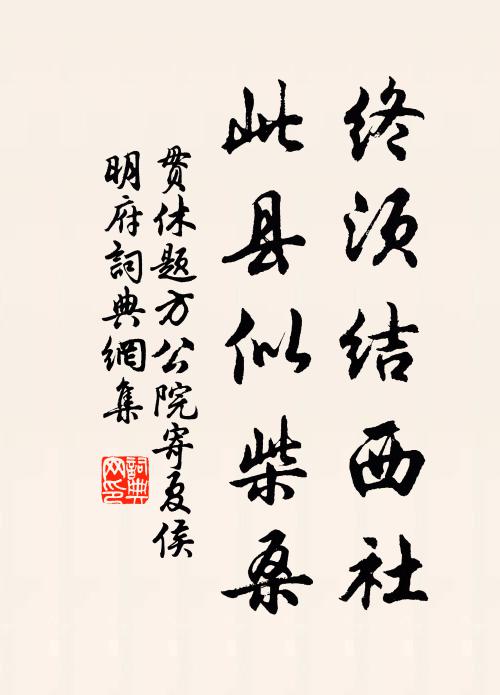 终须结西社
此县似柴桑
贯休题方公院寄夏侯
明府詞典網集
詞典网印